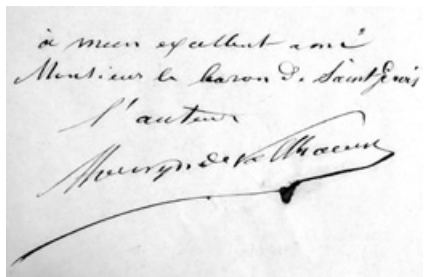 à mon excellent ami
Monsieur le baron de Saint Genis
l'auteur